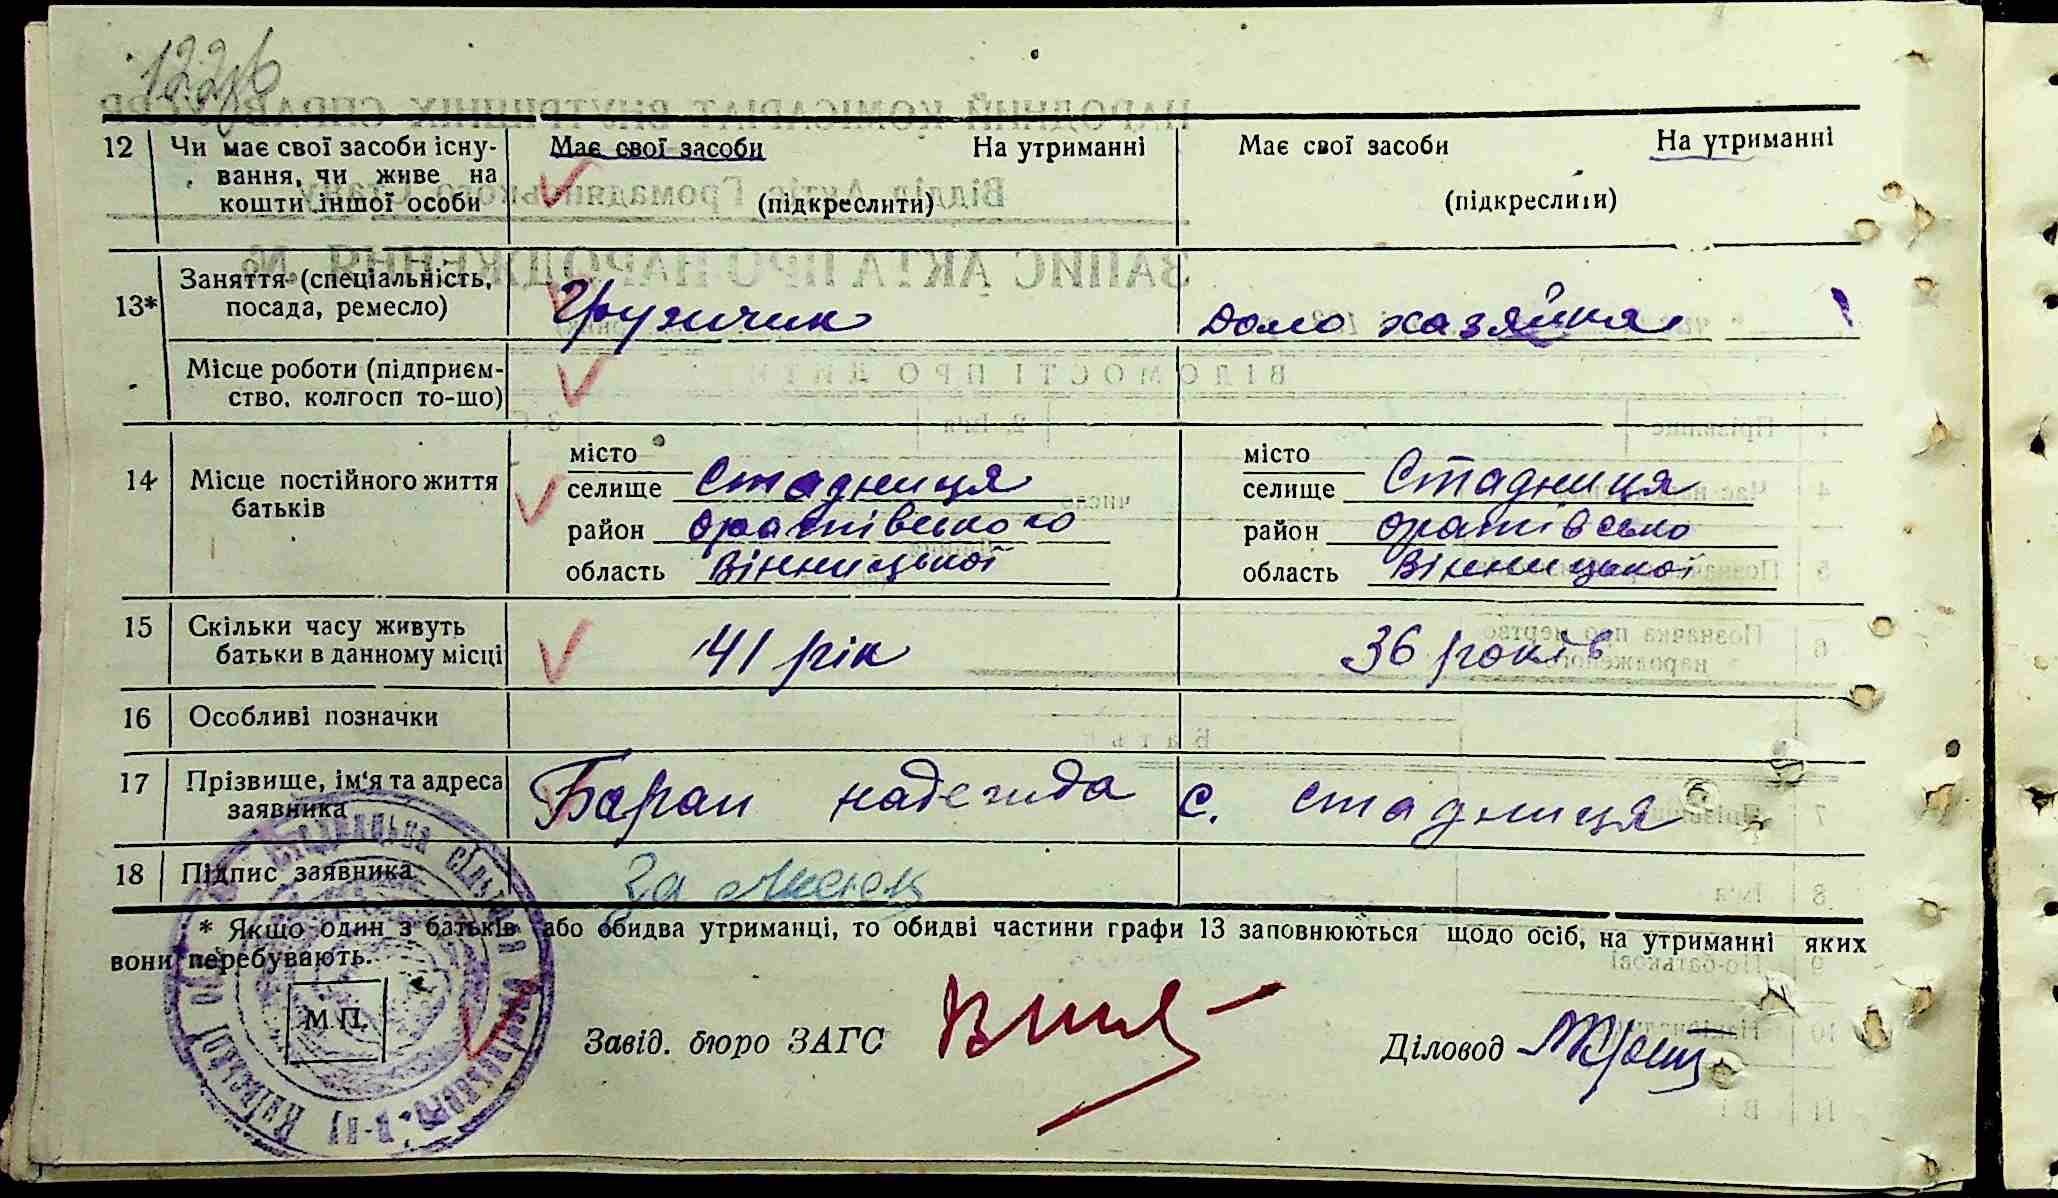 122
12 Чи має свої засоби існу- Має свої засоби На утриманні Має свої засоби На утриманні
вання, чи живе на
кошти іншої особи (підкреслити) (підкреслити)
13* Заняття (спеціальність,
посада, ремесло) Грузчик Домо хазяйка
Місце роботи (підприєм-
ство, колгосп то-що)
14 Місце постійного життя
батьків
місто місто
селище Стадниця селище Стадниця
район Оратівського район Оратівсько
область Вінницької область Вінницької
15 Скільки часу живуть
батьки в данному місці 41 рік 36 років
16 Особливі позначки
17 Прізвище, ім'я та адреса
заявника Баран надежда с. стадниця
18 Підпис заявника За
* Якщо один з батьків або обидва утриманці, то обидві частини графи 13 заповнюються щодо осіб, на утриманні яких
вони перебувають.
М.П.
Завід. бюро ЗАГС Діловод